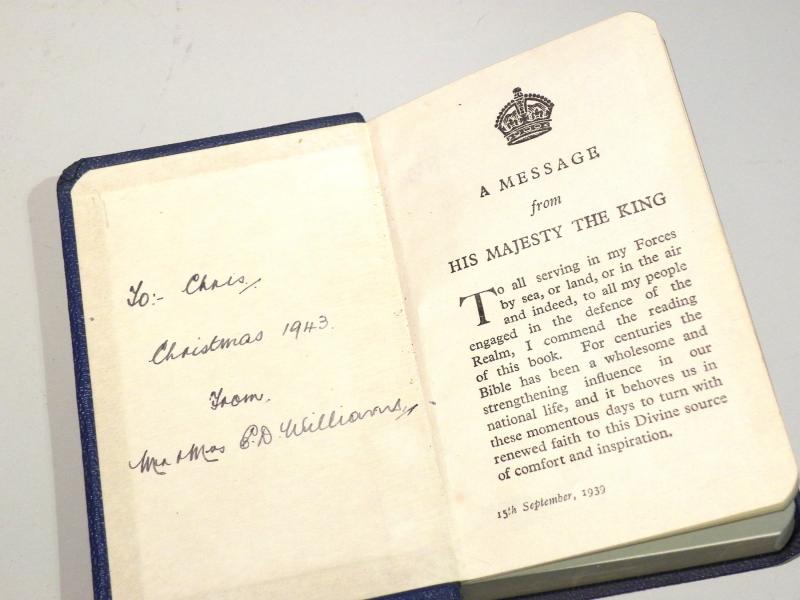 To:- Chris.
Christmas 1943.
From.
Mr & Mrs E.D. Williams
A MESSAGE
from
HIS MAJESTY THE KING
To all serving in my Forces
by sea, or land, or in the air
and indeed, to all my people
engaged in the defence of the
Realm, I commend the reading
of this book. For centuries the
Bible has been a wholesome and
strengthening influence in our
national life, and it behoves us in
these momentous days to turn with
renewed faith to this Divine source
of comfort and inspiration.
15th September, 1939